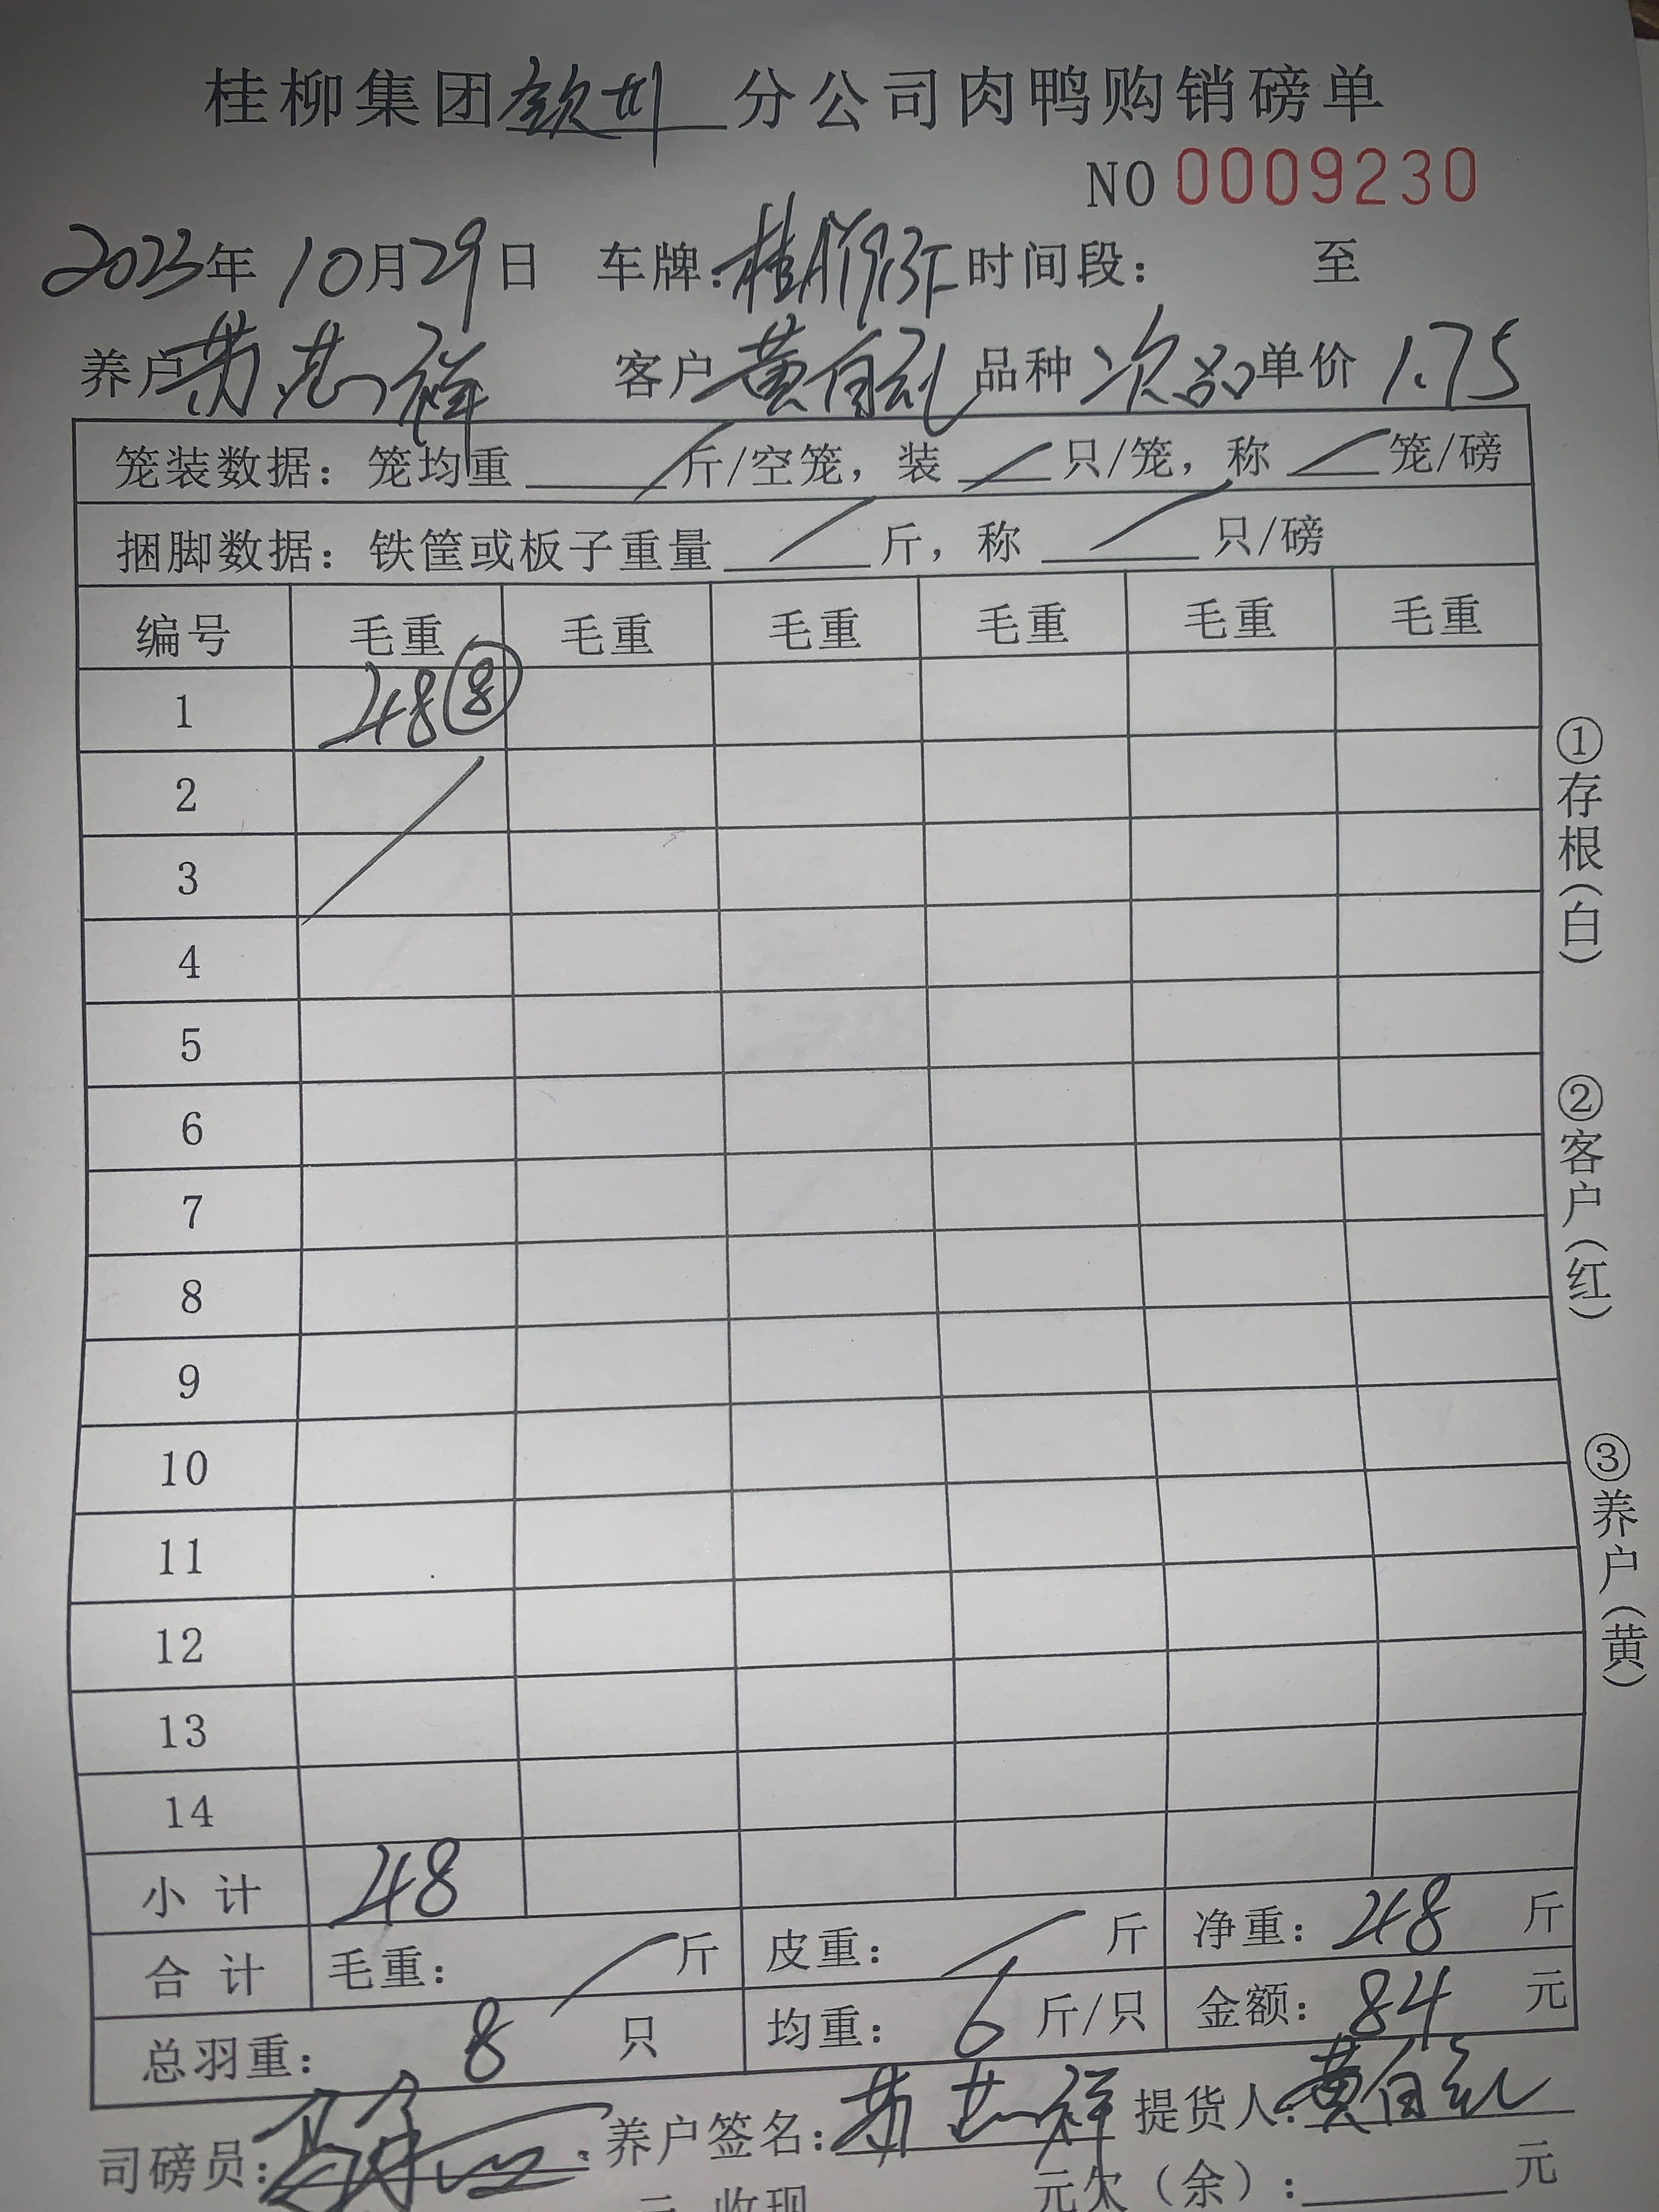 桂柳集团钦州分公司肉鸭购销磅单
NO 0009230
2023年10月29日 车牌: 时间段: 至
养户 客户 黄自 品种 次品 单价 1.75
笼装数据: 笼均重 / 斤/空笼, 装 / 只/笼, 称 / 笼/磅
捆脚数据: 铁筐或板子重量 / 斤, 称 / 只/磅
编号 毛重 毛重 毛重 毛重 毛重 毛重
1 48 ⑧
2
3
4
5
6
7
8
9
10
11
12
13
14
小计 48
合计 毛重: / 斤 皮重: / 斤 净重: 48 斤
总羽重: 8 只 均重: 6 斤/只 金额: 84 元
司磅员: 养户签名: 提货人: 黄自
元 收现 元欠(余): 元
①存根(白)
②客户(红)
③养户(黄)